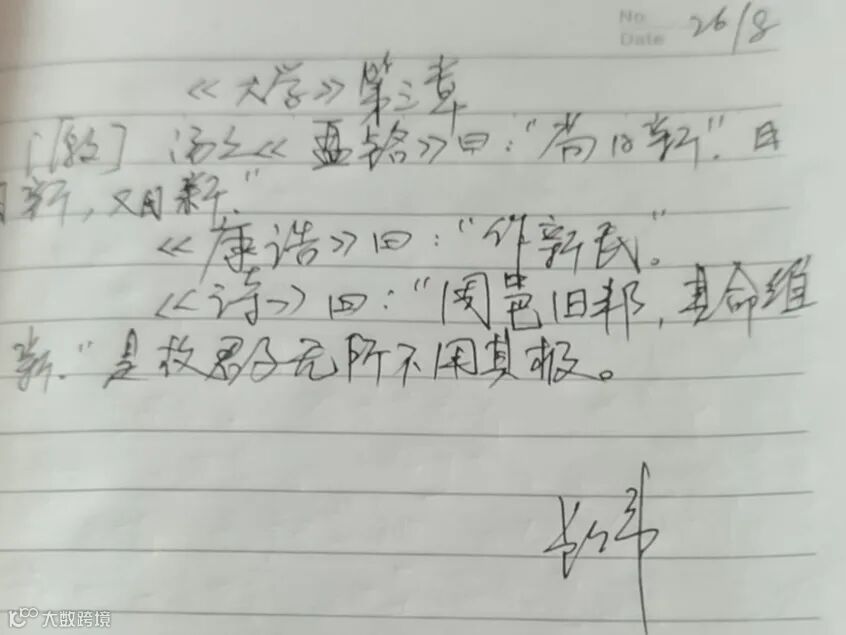 No
Date 26/8
《大学》第三章
[原文] 汤之《盘铭》曰:"苟日新". 日
日新,又日新."
《康诰》曰:"作新民。"
《诗》曰:"周邑旧邦,其命维
新."是故君子无所不用其极。
大数跨境